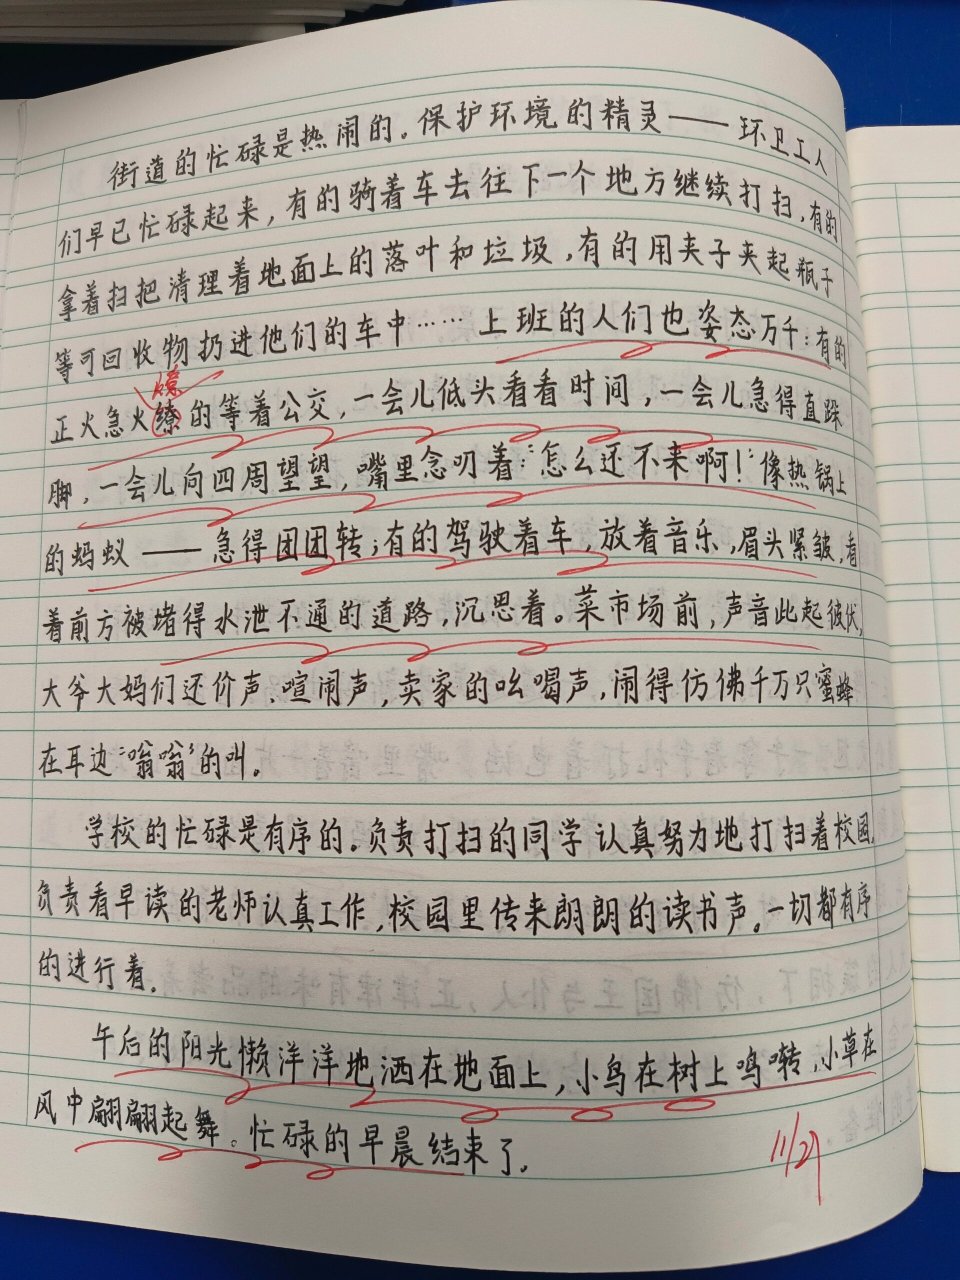 街道的忙碌是热闹的。保护环境的精灵——环卫工人
们早已忙碌起来，有的骑着车去往下一个地方继续打扫，有的
拿着扫把清理着地面上的落叶和垃圾，有的用夹子夹起瓶子
等可回收物扔进他们的车中……上班的人们也姿态万千：有的
燎
正火急火缭的等着公交，一会儿低头看看时间，一会儿急得直跺
脚，一会儿向四周望望，嘴里念叨着：“怎么还不来啊！”像热锅上
的蚂蚁——急得团团转；有的驾驶着车，放着音乐，眉头紧皱，看
着前方被堵得水泄不通的道路，沉思着。菜市场前，声音此起彼伏，
大爷大妈们还价声、喧闹声，卖家的吆喝声，闹得仿佛千万只蜜蜂
在耳边“嗡嗡”的叫。
学校的忙碌是有序的。负责打扫的同学认真努力地打扫着校园，
负责看早读的老师认真工作，校园里传来朗朗的读书声。一切都有序
的进行着。
午后的阳光懒洋洋地洒在地面上，小鸟在树上鸣啭，小草在
风中翩翩起舞。忙碌的早晨结束了。
11/27